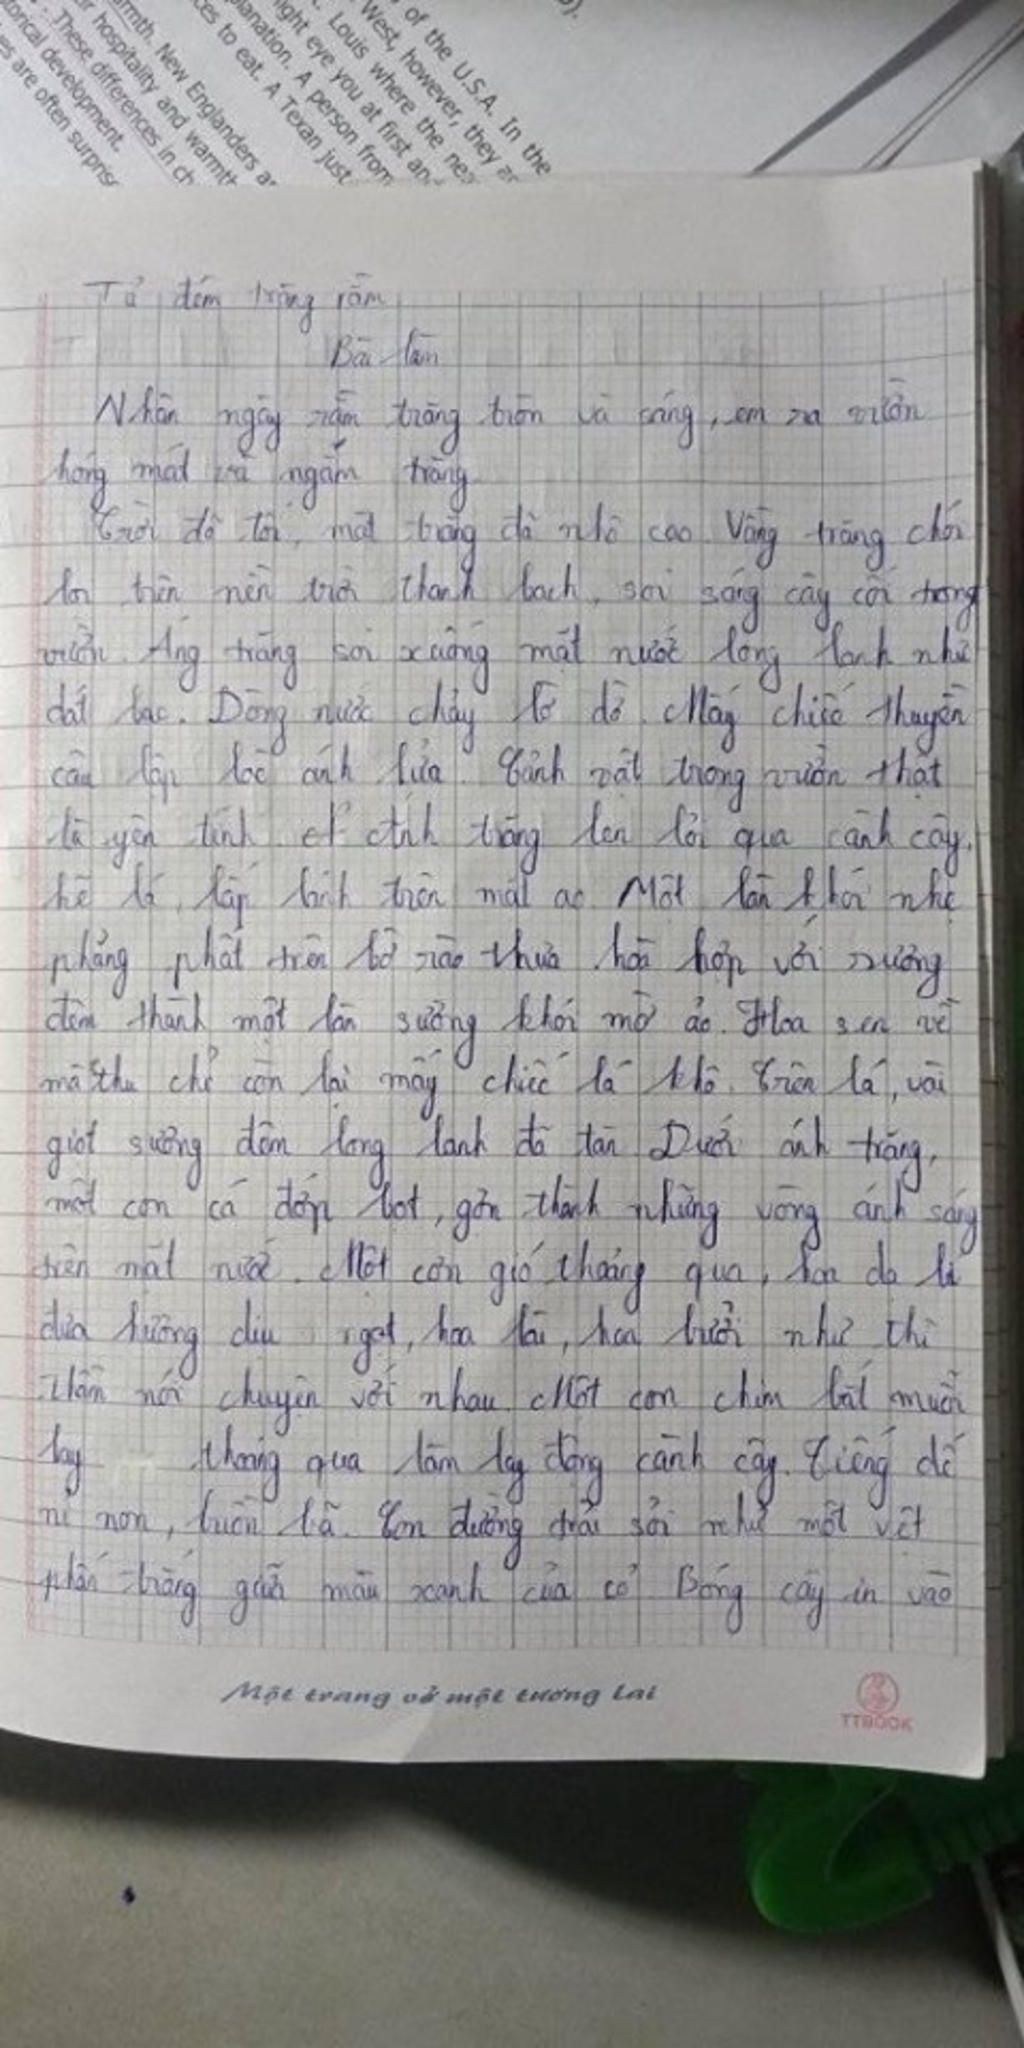 of the U.S.A. In the
West, however, they
. Louis where the
ight eye you at first and
lanation. A person from
ces to eat. A Texan just
rmth. New Englanders
r hospitality and warmth
These differences in ch
torical development.
es are often surpris
Tả đêm trăng rằm
Bài làm
Nhân ngày rằm trăng tròn và sáng, em ra vườn
hóng mát và ngắm trăng
Trời đã tối, mặt trăng đã nhô cao Vầng trăng chói
lọi trên nền trời thanh bạch, soi sáng cây cối trong
vườn. Áng trăng soi xuống mặt nước long lanh như
dát bạc. Dòng nước chảy lờ đờ. Mấy chiếc thuyền
câu lập loè ánh lửa. Cảnh vật trong vườn thật
là yên tĩnh Ánh trăng len lỏi qua cành cây,
kẽ lá, lấp lánh trên mặt ao Một làn khói nhẹ
phảng phất trên bờ rào thưa hoà hợp với sương
đêm thành một làn sương khói mờ ảo. Hoa sen về
mà thu chỉ còn lại mấy chiếc lá khô. Trên lá, vài
giọt sương đêm long lanh đã tan Dưới ánh trăng,
một con cá đớp bọt, gợn thành những vòng ánh sáng
trên mặt nước. Một cơn gió thoảng qua, hoa dạ lí
đưa hương dịu ngọt, hoa lài, hoa bưởi như thì
thầm nói chuyện với nhau. Một con chim bắt muỗi
bay thoáng qua làm lay động cành cây. Tiếng dế
nỉ non, buồn bã. Con đường trải sỏi như một vệt
phấn trắng giữa màu xanh của cỏ Bóng cây in vào
Một trang vở một tương lai
TTBOOK